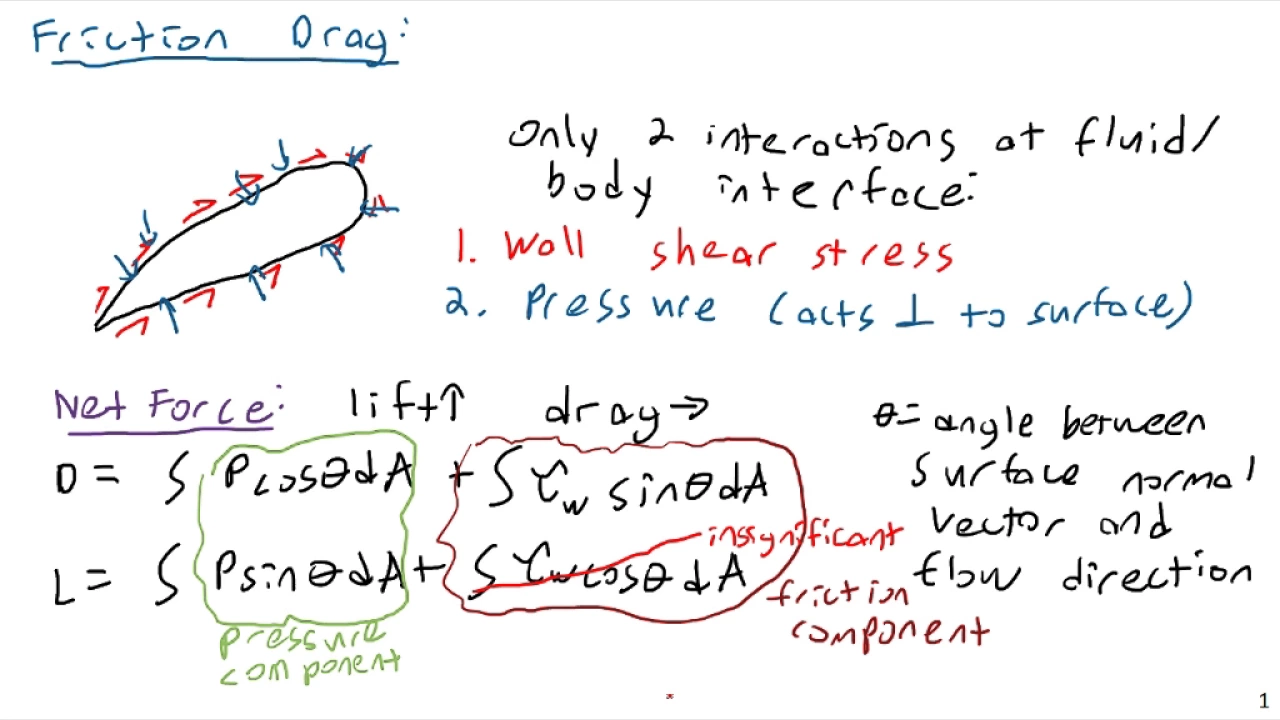 Friction Drag:
Only 2 interactions at fluid/
body interface:
1. Wall shear stress
2. Pressure (acts ⊥ to surface)
Net Force: lift↑ drag→
D = ∫ P cosθ dA + ∫ τw sinθ dA
L = ∫ P sinθ dA + ∫ τw cosθ dA
insignificant
pressure
component
friction
component
θ = angle between
surface normal
vector and
flow direction
*
1